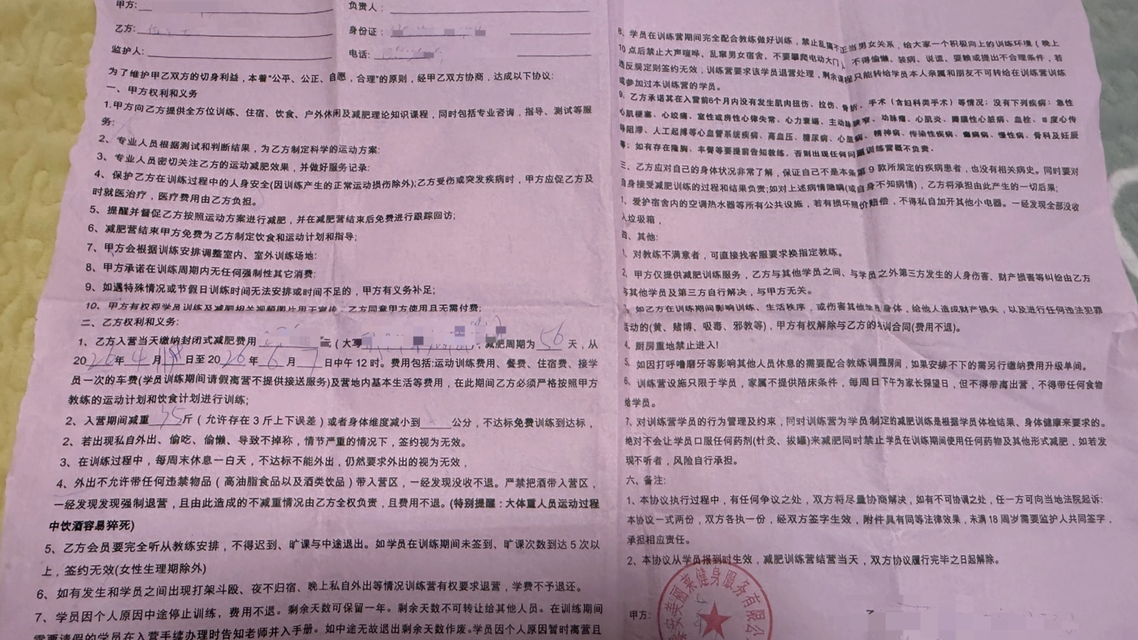 甲方：
负责人：
乙方：
身份证：
监护人：
电话：
为了维护甲乙双方的切身利益，本着“公平、公正、自愿，合理”的原则，经甲乙双方协商，达成以下协议：
一、甲方权利和义务
1.甲方向乙方提供全方位训练、住宿、饮食、户外休闲及减肥理论知识课程，同时包括专业咨询，指导、测试等服
务：
2、专业人员根据测试和判断结果，为乙方制定科学的运动方案：
3、专业人员密切关注乙方的运动减肥效果，并做好服务记录：
4、保护乙方在训练过程中的人身安全(因训练产生的正常运动损伤除外);乙方受伤或突发疾病时，甲方应促乙方及
时就医治疗，医疗费用由乙方负担。
5、提醒并督促乙方按照运动方案进行减肥，并在减肥营结束后免费进行跟踪回访；
6、减肥营结束甲方免费为乙方制定饮食和运动计划和指导;
7、甲方会根据训练安排调整室内、室外训练场地:
8、甲方承诺在训练周期内无任何强制性其它消费:
9、如遇特殊情况或节假日训练时间无法安排或时间不足的，甲方有义务补足;
10、甲方有权将学员训练及减肥相关视频图片用于宣传，乙方同意甲方使用且无需付费:
二、乙方权利和义务:
1、乙方入营当天缴纳封闭式减肥费用 元（大写 减肥周期为 56 天，从
20 26 年 4 月 日至 20 26 年 6 月 日中午 12 时。费用包括:运动训练费用、餐费、住宿费、接学
员一次的车费(学员训练期间请假离营不提供接送服务)及营地内基本生活等费用，在此期间乙方必须严格按照甲方
教练的运动计划和饮食计划进行训练;
2、入营期间减重 斤（允许存在 3 斤上下误差）或者身体维度减小到 公分，不达标免费训练到达标，
2、若出现私自外出、偷吃、偷懒、导致不掉称，情节严重的情况下，签约视为无效。
3、在训练过程中，每周末休息一白天，不达标不能外出，仍然要求外出的视为无效，
4、外出不允许带任何违禁物品（高油脂食品以及酒类饮品）带入营区，一经发现没收不退。严禁把酒带入营区，
一经发现发现强制退营，且由此造成的不减重情况由乙方全权负责，且费用不退。(特别提醒：大体重人员运动过程
中饮酒容易猝死)
5、乙方会员要完全听从教练安排，不得迟到、旷课与中途退出。如学员在训练期间未签到、旷课次数到达 5 次以
上，签约无效(女性生理期除外)
6、如有发生和学员之间出现打架斗殴、夜不归宿、晚上私自外出等情况训练营有权要求退营，学费不予退还。
7、学员因个人原因中途停止训练，费用不退。剩余天数可保留一年。剩余天数不可转让给其他人员。在训练期间
需要请假的学员在入营手续办理时告知老师并入手册。如中途无故退出剩余天数作废。学员因个人原因暂时离营且
8、学员在训练营期间完全配合教练做好训练，禁止乱属不正当男女关系，给大家一个积极向上的训练环境（晚上
10 点后禁止大声喧哗，乱窜男女宿舍，不要攀爬电动大门，不得偷懒、装病、说谎、要赖或提出不合理条件，若
违反规定则签约无效，训练营要求该学员退营处理，剩余课程只能转给学员本人亲属和朋友不可转给在训练营训练
或参加过本训练营的学员。
9、乙方承诺其在入营前6个月内没有发生肌肉扭伤、拉伤、骨折、手术（含妇科类手术）等情况：没有下列疾病：急性
心肌梗塞、心绞痛、室性或房性心律失常、心力衰竭，主动脉 窄、动脉瘤、心肌炎、肺源性心脏病、血栓、II 度心传
导阻滞、人工起搏等心血管系统疾病、高血压、糖尿病、心脏病、精神病，传染性疾病、癫痫病、慢性病、骨科及妊辰
等；如有存在隆胸、丰臀等要提前告知教练，否则出现任何问题训练营概不负责。
三、乙方应对自己的身体状况非常了解，保证自己不是本条第 9 款所规定的疾病患者，也没有相关病史。同时要对
自身接受减肥训练的过程和结果负责;如对上述病情隐瞒(或自身不知病情)，乙方将承担由此产生的一切后果;
1、爱护宿舍内的空调热水器等所有公共设施，若有损坏照价赔偿，不得私自加开其他小电器。一经发现全部没收
入垃圾箱，
四、其他:
1、对教练不满意者，可直接找客服要求换指定教练。
2、甲方仅提供减肥训练服务，乙方与其他学员之间、与学员之外第三方发生的人身伤害、财产损害等纠纷由乙方
与其他学员及第三方自行解决，与甲方无关。
3、如乙方在训练期间影响训练、生活秩序，或伤害其他学员身体，给他人造成财产损失，以及进行任何违法犯罪
活动的(黄、赌博、吸毒、邪教等)，甲方有权解除与乙方的培训合同(费用不退)。
4、厨房重地禁止进入!
5、如因打呼噜磨牙等影响其他人员休息的需要配合教练调整房间，如果安排不下的需另行缴纳费用升级单间。
6、训练营设施只限于学员，家属不提供陪床条件，每周日下午为家长探望日，但不得带离出营，不得带任何食物
给学员。
7、对训练营学员的行为管理及约束，同时对训练营为学员制定的减肥训练是根据学员体检结果、身体健康来要求的。
绝对不会让学员口服任何药剂(针灸、拔罐)来减肥同时禁止学员在训练期间使用任何药物及其他形式减肥，如若发
现不听者，风险自行承担。
六、备注：
1、本协议执行过程中，有任何争议之处，双方将尽量协商解决，如有不可协调之处，任一方可向当地法院起诉:
本协议一式两份，双方各执一份，经双方签字生效，附件具有同等法律效果，未满 18 周岁需要监护人共同签字，
承担相应责任。
2、本协议从学员报到时生效，减肥训练营结营当天，双方协议履行完毕之日起解除。
甲方：
美丽莱健身服务有限公